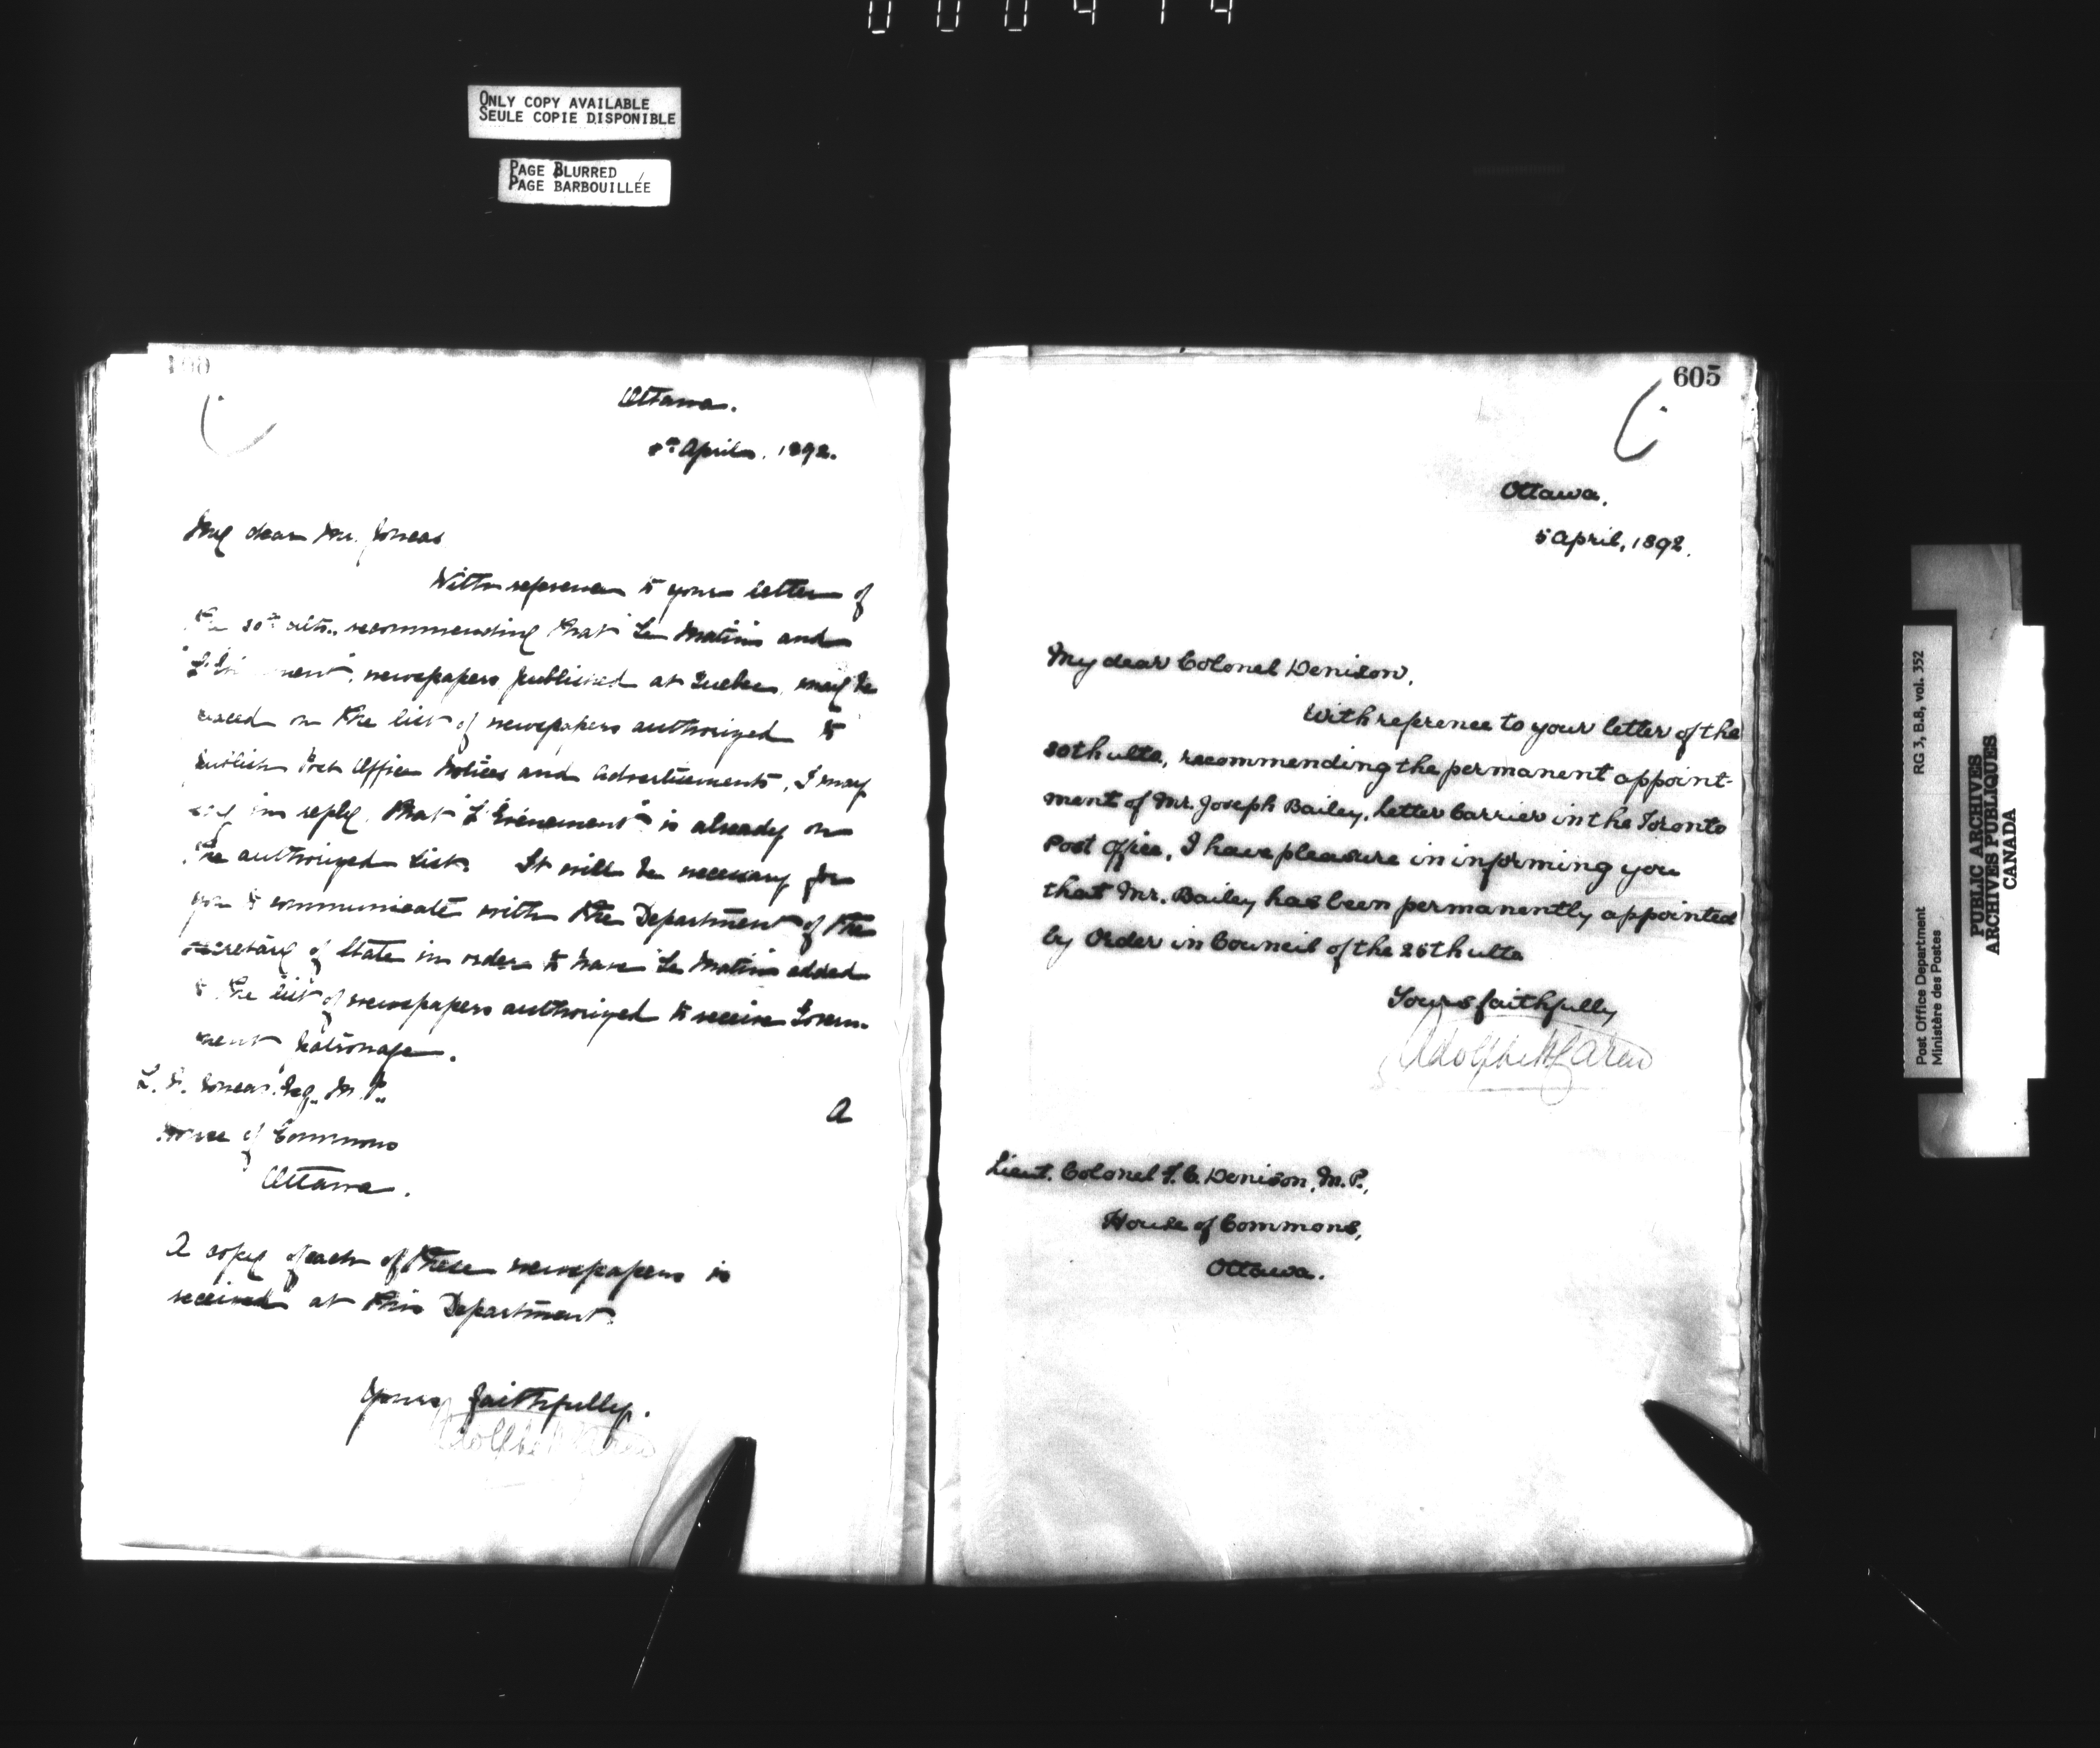 ONLY COPY AVAILABLE
SEULE COPIE DISPONIBLE
PAGE BLURRED
PAGE BARBOUILLÉE
Ottawa.
April, 1892.
My dear Mr. Joneas
With reference to your letter of
the 30th ulto., recommending that "Le Matin" and
newspapers published at Quebec, may be
placed on the list of newspapers authorized to
publish Post Office Notices and Advertisements, I may
say in reply, that "L'Evénement" is already on
the authorized list. It will be necessary for
you to communicate with the Department of the
Secretary of State in order to have Le Matin added
to the list of newspapers authorized to receive Govern-
ment Patronage.
L. Z. Joneas Esq., M.P.,
House of Commons
Ottawa.
A
A copy of each of these newspapers is
received at this Department.
Yours faithfully,
Adolphe P. Caron
605
Ottawa,
5 April, 1892.
My dear Colonel Denison,
With reference to your letter of the
30th ulto, recommending the permanent appoint-
ment of Mr. Joseph Bailey, Letter Carrier in the Toronto
Post Office, I have pleasure in informing you
that Mr. Bailey has been permanently appointed
by Order in Council of the 25th ulto
Yours faithfully
Adolphe P. Caron
Lieut. Colonel F. C. Denison, M.P.,
House of Commons,
Ottawa.
Post Office Department
Ministère des Postes
RG 3, B.8, vol. 352
PUBLIC ARCHIVES
ARCHIVES PUBLIQUES
CANADA